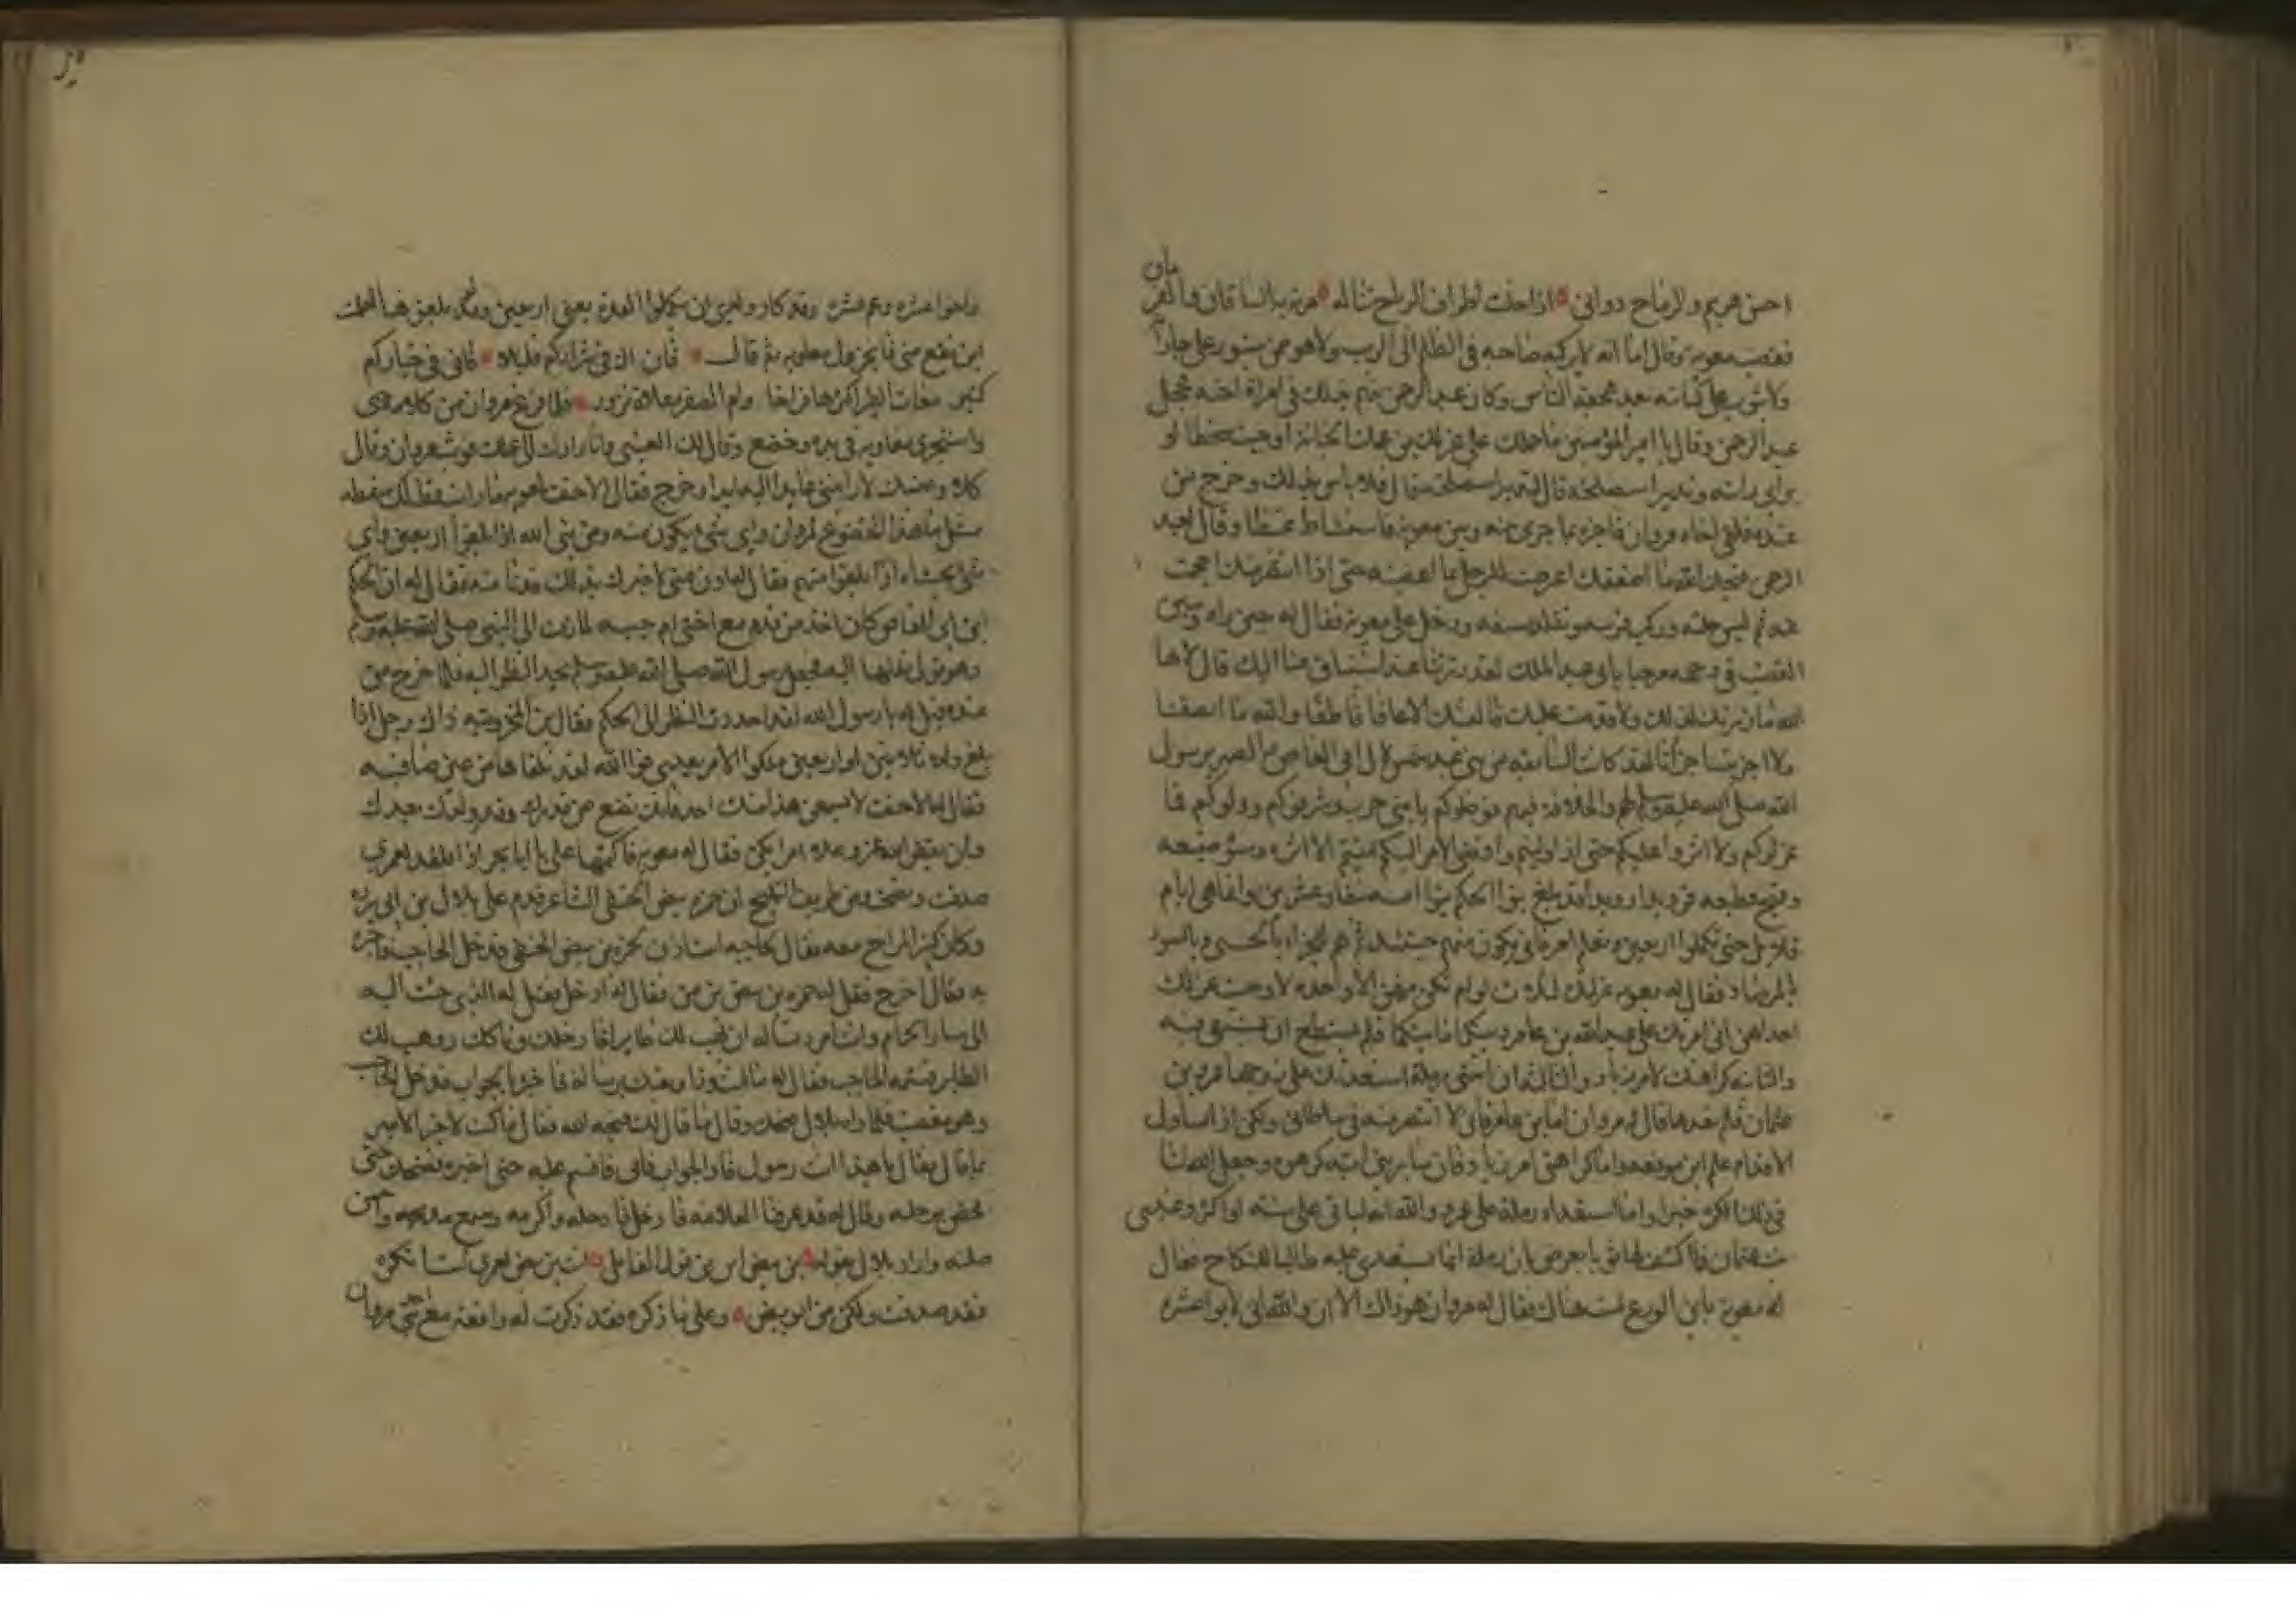 احسن هريم والرماح دواني اذا احلت اطراف الرماح تناله مرته به الساقان والقدمان
فغضب معوية وقال اما انه لا يركبه صاحبه في الظلم الى الريب ولا هو ممن يتسور على جاراته
ولا يتوثب على كنائنه بعد هجعة الناس وكان عبد الرحمن يتهم بذلك في امراة اخيه فخجل
عبد الرحمن وقال يا امير المؤمنين ما حملك على عزل ابن عمك الجناية اوجبت سخطا او
براي رايته وتدبير استصلحته قال لتدبير استصلحته قال فلا باس بذلك وخرج من
عنده فلقي اخاه مروان فاخبره بما جرى بينه وبين معوية فاستشاط غيظا وقال لعبد
الرحمن قبحك الله ما اضعفك اعرضت للرجل بما اغضبه حتى اذا انتصر منك احجمت
عنه ثم لبس حلته وركب فرسه وتقلد سيفه ودخل على معوية فقال له حين راه وتبين
الغضب في وجهه مرحبا بابي عبد الملك لقد زرتنا عند اشتياق منا اليك قال لا ها
الله ما زرتك لذلك ولا قدمت عليك فالفيتك الا عاقا قاطعا والله ما انصفتنا
ولا جزيتنا جزانا لقد كانت السابقة من بني عبد شمس لال ابي العاص والصهر برسول
الله صلى الله عليه وسلم لهم والخلافة فيهم فوصلوكم يا بني حرب وشرفوكم وولوكم فما
عزلوكم ولا اثروا عليكم حتى اذا وليتم وافضى الامر اليكم ابيتم الا اثرة وسؤ صنيعه
وقبح قطيعه فرويدا رويدا قد بلغ بنوا الحكم وبنوا ابنه نيفا وعشرين وانما هي ايام
قلايل حتى يكملوا اربعين ويعلم امرء اين يكون منهم حينئذ ثم هم للجزاء بالحسنى وبالسوء
بالمرصاد فقال له معوية عزلتك لثلاث لو لم تكن منهن الا واحدة لاوجبت عزلك
احداهن اني امرتك على عبد الله بن عامر وبينكما ما بينكما فلم تستطع ان تشتفي منه
والثانية كراهتك لامر زياد والثالثة ان ابنتي رملة استعدتك على زوجها عمرو بن
عثمان فلم تعدها فقال له مروان اما ابن عامر فاني لا انتصر منه في سلطاني ولكن اذا تساوت
الاقدام علم اين موقعه واما كراهتي امر زياد فان ساير بني امية كرهوه وجعل الله لنا
في ذلك الكره خيرا واما استعداء رملة على عمرو والله انه لياتي علي سنة او اكثر وعندي
بنت عثمان فما اكشف لها ثوبا يعرض بان رملة انما تستعدي عليه طالبا للنكاح فقال
له معوية يا ابن الوزغ لست هناك فقال له مروان هو ذاك الان والله اني لابو عشرة
واخو عشرة وعم عشرة وقد كاد ولدي ان يكملوا العدة يعني اربعين ولو قد بلغوها لعلمت
اين تقع مني فانخزل معوية ثم قال فان اك في شراركم قليلا فاني في خياركم
كثير بغاث الطير اكثرها فراخا وام الصقر مقلاة نزور فلما فرغ مروان من كلامه
واستخذى معاوية في يده وخضع وقال لك العتبى وانا رادك الى عملك فوثب مروان وقال
كلا وعيشك لا رايتني عايدا اليه ابدا وخرج فقال الاحنف لمعوية ما رايت قط لك سقطة
مثلها ما هذا الخضوع لمروان واي شئ يكون منه ومن بني ابيه اذا بلغوا اربعين واي
شئ تخشاه اذا بلغوا منهم فقال له ادن مني اخبرك بذلك فدنا منه فقال له ان الحكم
ابن ابي العاص كان احد من قدم مع اختي ام حبيبة لما زفت الى النبي صلى الله عليه وسلم
وهو تولى نقلها اليه فجعل رسول الله صلى الله عليه وسلم يحد النظر اليه فلما خرج من
عنده قيل له يا رسول الله لقد احددت النظر الى الحكم فقال ابن المخزومية ذاك رجل اذا
بلغ ولده ثلاثين او اربعين ملكوا الامر بعدي فوالله لقد تلقاها من عين صافية
فقال له الاحنف لا يسمعن هذا منك احد فانك تضع من قدرك وقدر ولدك بعدك
وان يقض الله عز وجل امرا يكن فقال له معوية فاكتمها علي يا ابا بحر اذا فلقد لعمري
صدقت ونصحت ومن طريف التلميح ان حمزة بن بيض الحنفي الشاعر قدم على بلال بن ابي بردة
وكان كثير المزاح معه فقال لحاجبه استاذن لحمزة بن بيض الحنفي فدخل الحاجب فاخبره
به فقال اخرج فقل له حمزة بن بيض بن من فقال له ادخل فقل له الذي جئت اليه
الى بنيار الحمام وانت امرد تساله ان يهب لك طايرا فادخلك وناكك ووهب لك
الطاير فشتمه الحاجب فقال له ما انت وذا بعثك برسالة فاخبره بالجواب فدخل الحاجب
وهو مغضب فلما راه بلال ضحك وقال ما قال لك قبحه الله فقال ما كنت لاخبر الامير
بما قال فقال يا هذا انت رسول فاد الجواب فابى فاقسم عليه حتى اخبره فضحك حتى
فحص برجله وقال له قد عرفنا العلامة فادخل فادخله واكرمه وسمع مديحه واحسن
صلته واراد بلال بقوله بن بيض ابن من قول القائل انت بن بيض لعمري لست انكره
فقد صدقت ولكن من ابو بيض وعلى ما ذكره فقد ذكرت له واقعة مع بني مروان